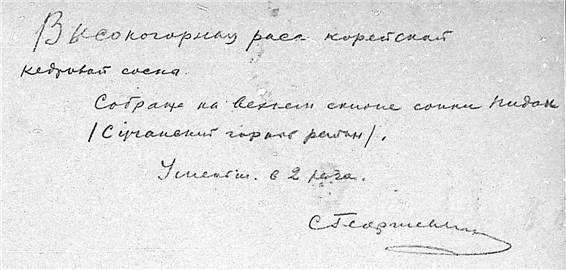 Высокогорная раса корейской
кедровой сосны.
Собрано на верхнем склоне сопки Пидан
/Сучанский горно район/.
Уменьш. в 2 раза.